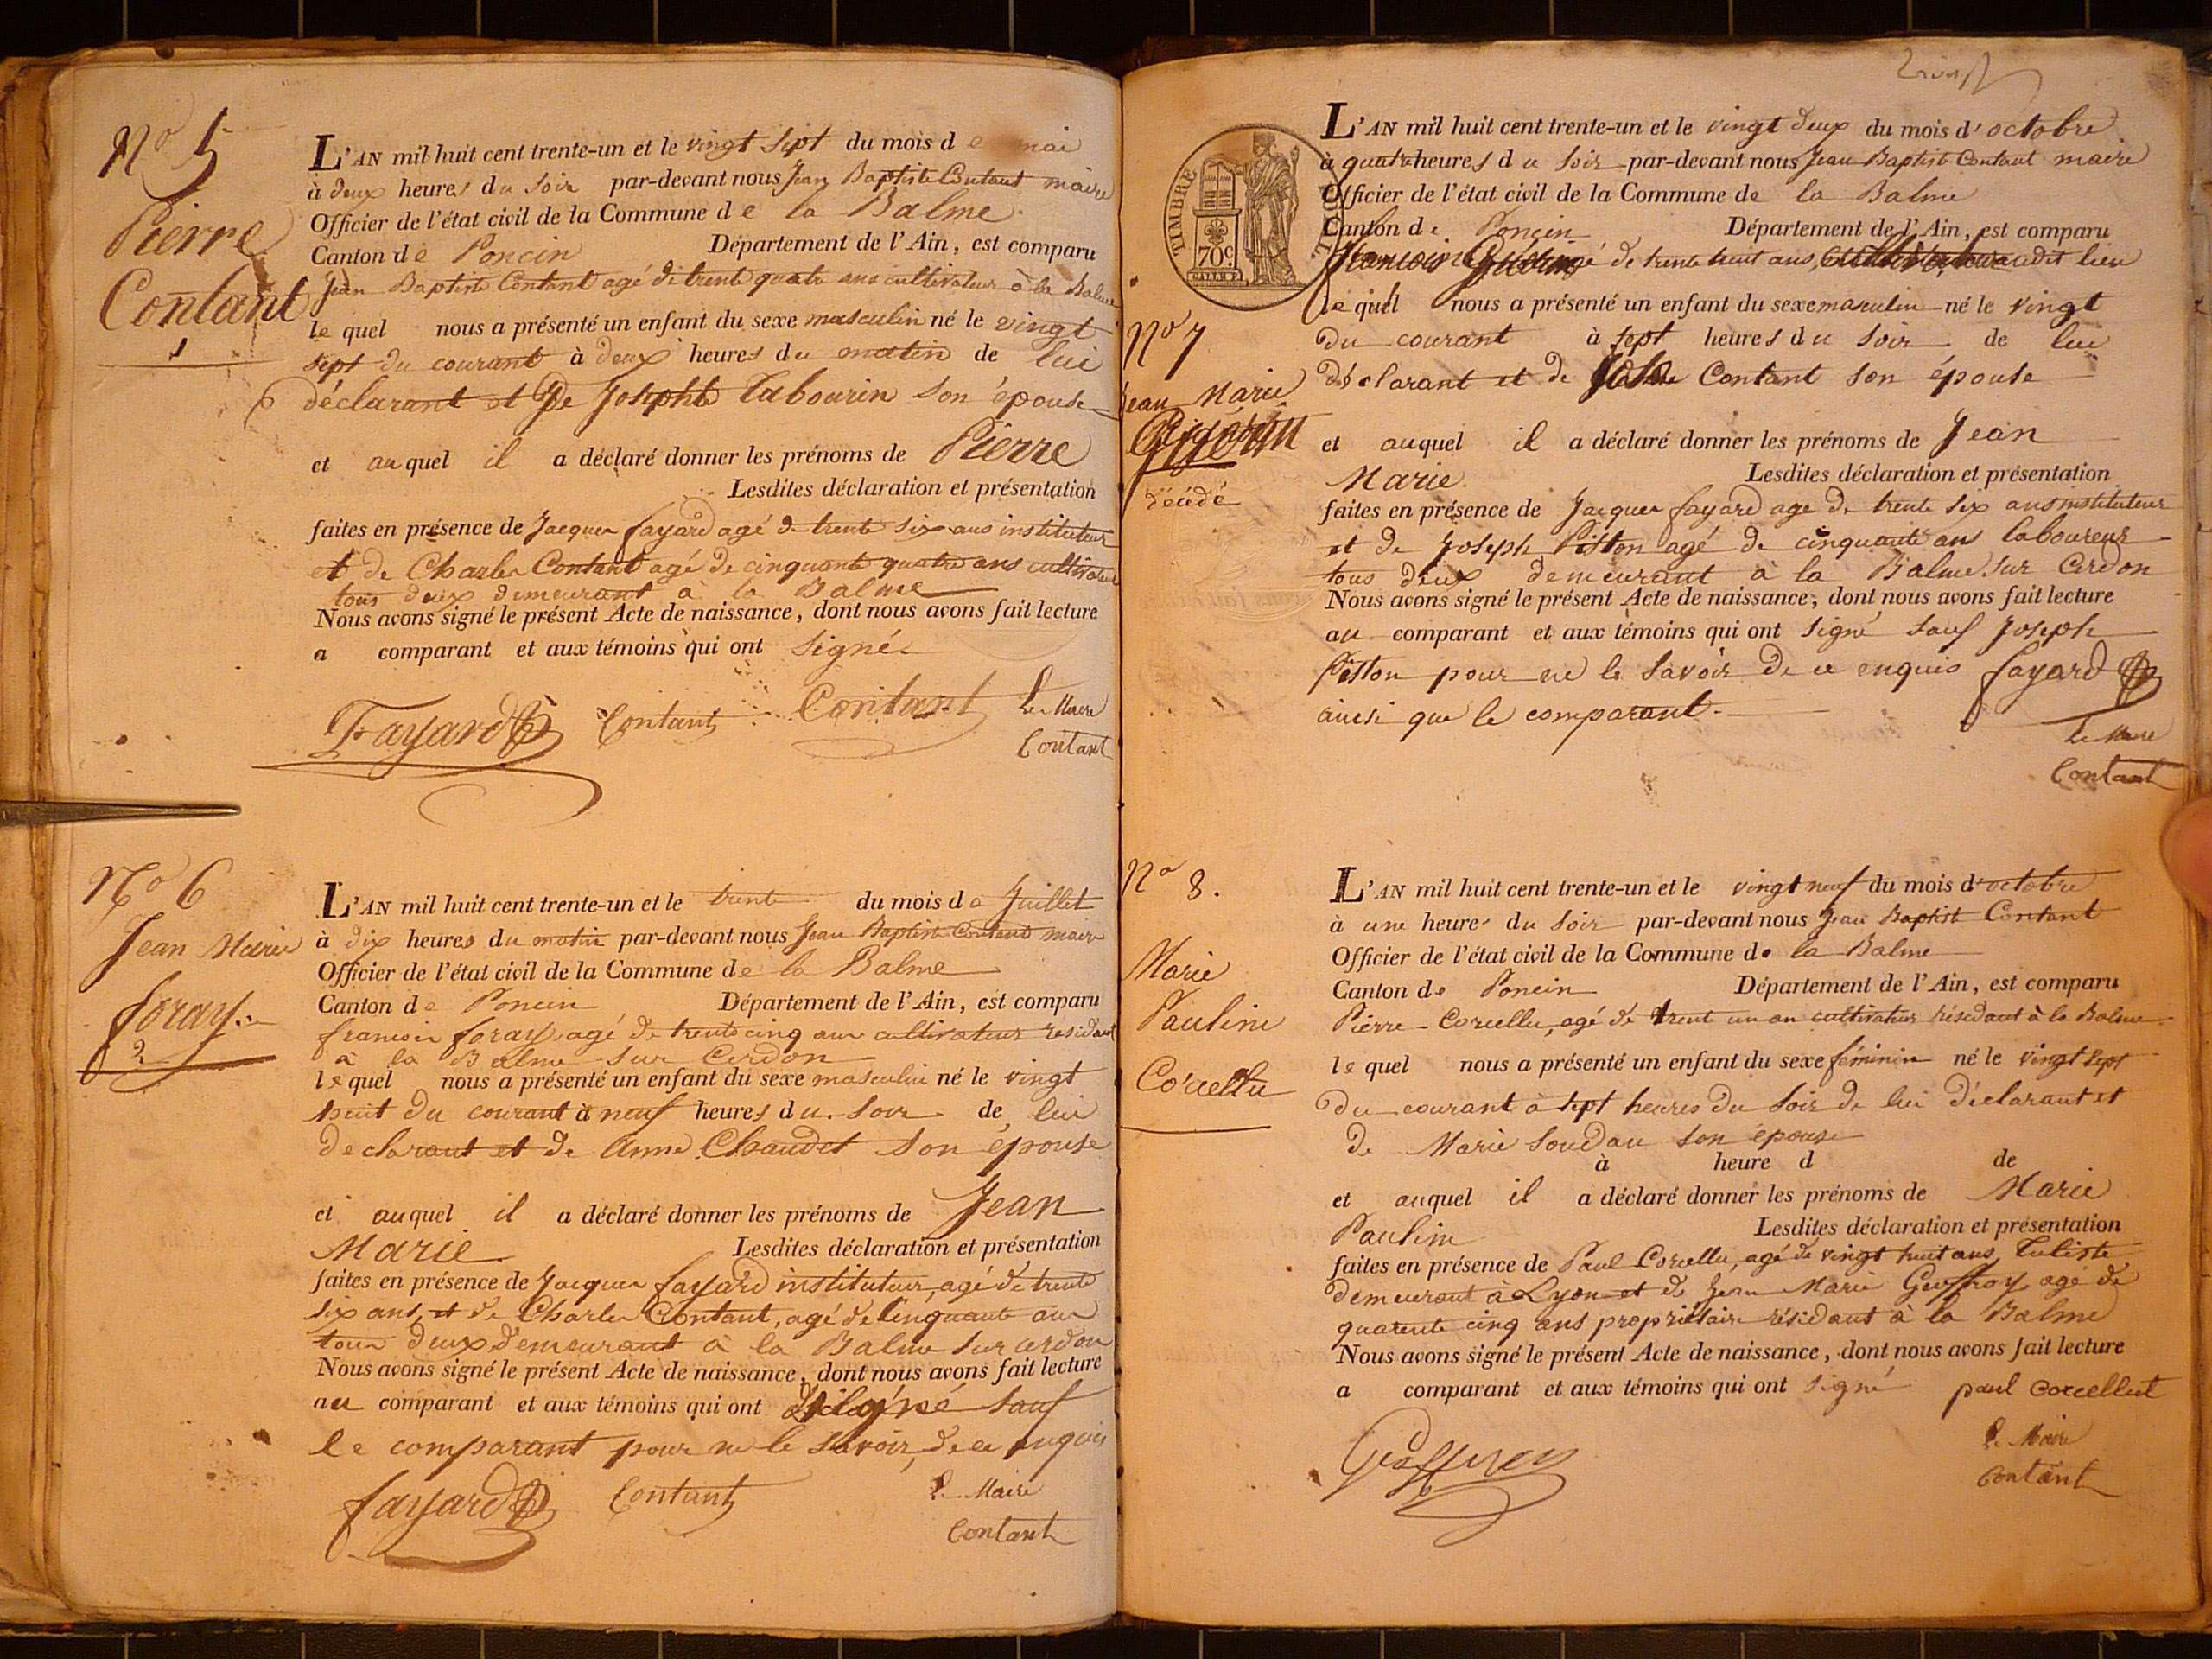 No 5
Pierre
Contant
1
L'AN mil huit cent trente-un et le vingt sept du mois de mai
à deux heures du soir par-devant nous Jean Baptiste Contant maire
Officier de l'état civil de la Commune de la Balme
Canton de Poncin Département de l'Ain, est comparu
Jean Baptiste Contant agé de trente quatre ans cultivateur à la Balme
le quel nous a présenté un enfant du sexe masculin né le vingt
sept du courant à deux heures du matin de lui
déclarant et de Josephte Tabourin son épouse
et auquel il a déclaré donner les prénoms de Pierre
Lesdites déclaration et présentation
faites en présence de Jacques fayard agé de trente six ans instituteur
et de Charles Contant agé de cinquante quatre ans cultivateur
tous deux demeurant à la Balme
Nous avons signé le présent Acte de naissance, dont nous avons fait lecture
a comparant et aux témoins qui ont signé
Fayard Contant Contant Le Maire
Contant
No 6
Jean Marie
foray
2
L'AN mil huit cent trente-un et le trente du mois de Juillet
à dix heures du matin par-devant nous Jean Baptiste Contant maire
Officier de l'état civil de la Commune de la Balme
Canton de Poncin Département de l'Ain, est comparu
francois foray agé de trente cinq ans cultivateur residant
à la Balme sur Cerdon
lequel nous a présenté un enfant du sexe masculin né le vingt
huit du courant à neuf heures du soir de lui
declarant et de Anne Chaudet son épouse
et auquel il a déclaré donner les prénoms de Jean
Marie Lesdites déclaration et présentation
faites en présence de Jacques fayard instituteur, agé de trente
six ans, et de Charles Contant, agé de Cinquante ans
tous deux demeurant à la Balme sur cerdon
Nous avons signé le présent Acte de naissance, dont nous avons fait lecture
au comparant et aux témoins qui ont signé sauf
le comparant pour ne le savoir, de ce enquis
fayard Contant Le Maire
Contant
TIMBRE
70c
L'AN mil huit cent trente-un et le vingt deux du mois d'octobre
à quatre heures du soir par-devant nous Jean Baptiste Contant maire
Officier de l'état civil de la Commune de la Balme
Canton de Poncin Département de l'Ain, est comparu
francois agé de trente huit ans, audit lieu
le quel nous a présenté un enfant du sexe masculin né le vingt
No 7
du courant à sept heures du soir de lui
déclarant et de Contant son épouse
Jean Marie
et auquel il a déclaré donner les prénoms de Jean
Marie Lesdites déclaration et présentation
décédé
faites en présence de Jacques fayard agé de trente six ans instituteur
et de Joseph Piston agé de cinquante ans laboureur
tous deux demeurant à la Balme sur Cerdon
Nous avons signé le présent Acte de naissance, dont nous avons fait lecture
au comparant et aux témoins qui ont signé sauf Joseph
Piston pour ne le savoir de ce enquis fayard
ainsi que le comparant
Le Maire
Contant
No 8.
Marie
Pauline
Corcellu
L'AN mil huit cent trente-un et le vingt neuf du mois d'octobre
à une heure du soir par-devant nous Jean Baptist Contant
Officier de l'état civil de la Commune de la Balme
Canton de Poncin Département de l'Ain, est comparu
Pierre Corcellu, agé de trent un an cultivateur résidant à la Balme
le quel nous a présenté un enfant du sexe féminin né le vingt sept
du courant à sept heures du soir de lui déclarant et
de Marie Soudan son épouse
à heure d de
et auquel il a déclaré donner les prénoms de Marie
Pauline Lesdites déclaration et présentation
faites en présence de Paul Corcellu, agé de vingt huit ans, Tuliste
demeurant à Lyon et de Jean Marie Geoffroy agé de
quarente cinq ans propriétaire résidant à la Balme
Nous avons signé le présent Acte de naissance, dont nous avons fait lecture
a comparant et aux témoins qui ont signé paul corcellut
Le Maire
Contant